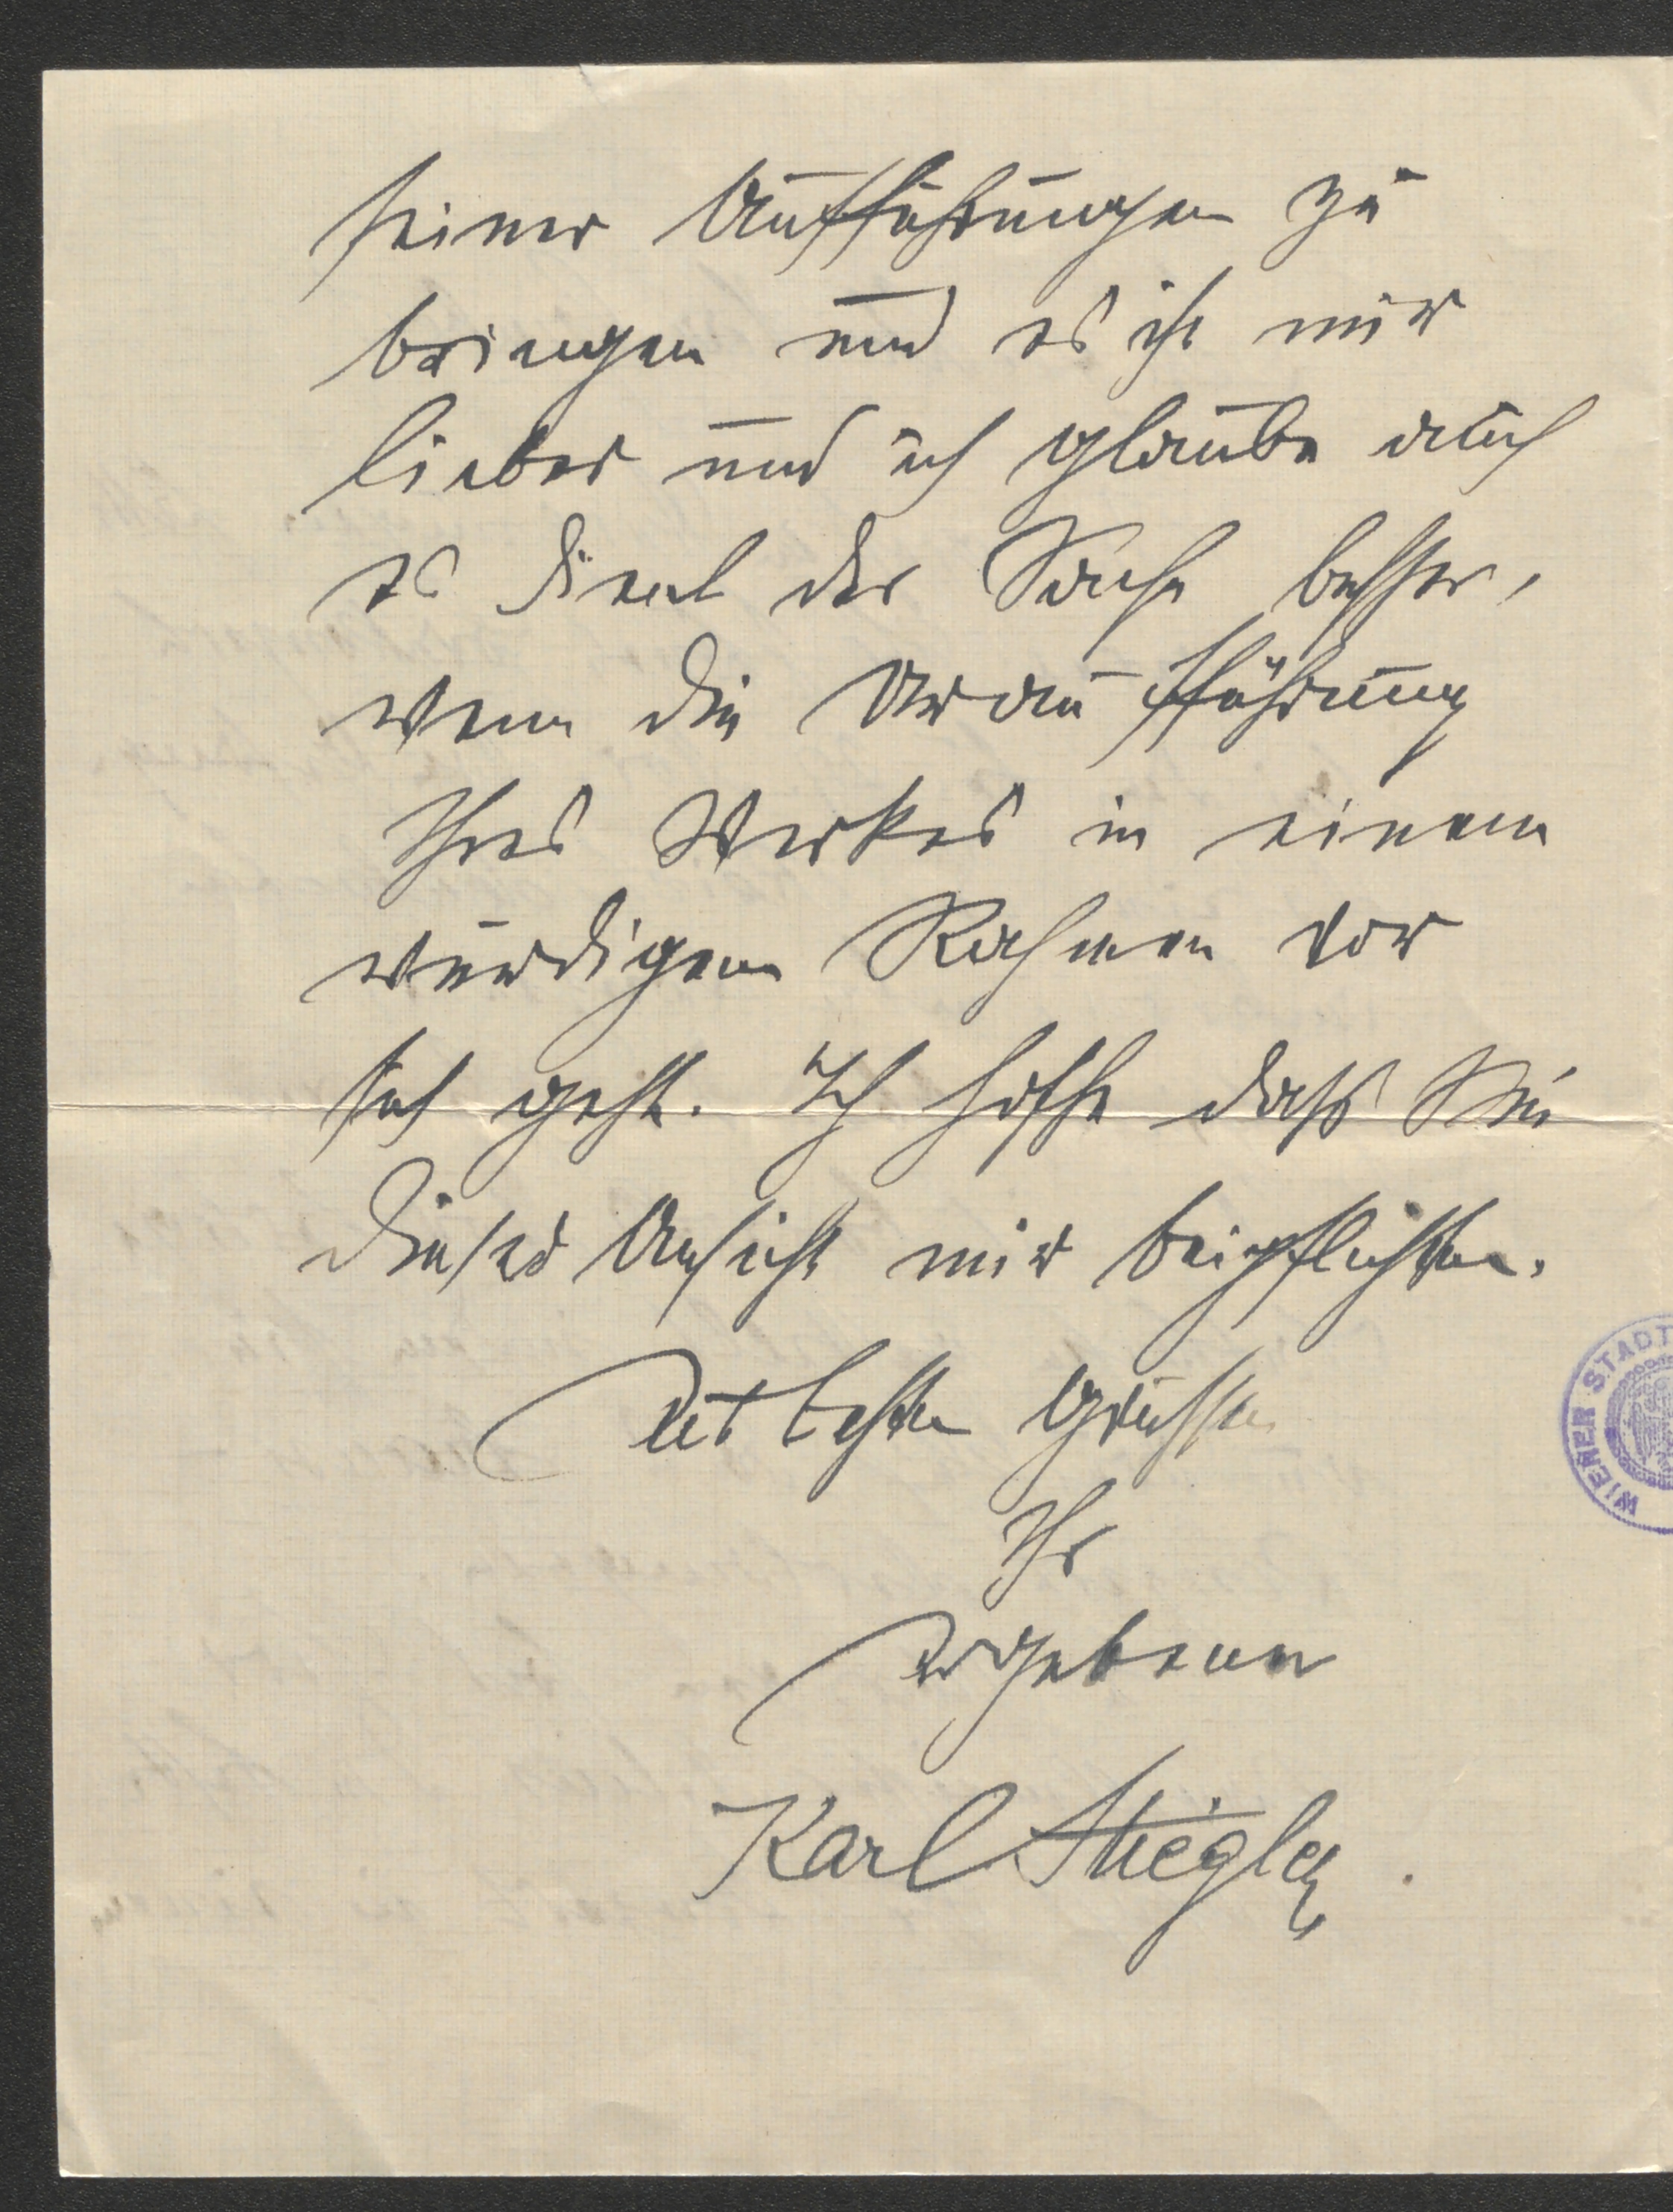 seiner Aufführungen zu
bringen und es ist mir
lieber und ich glaube auch
es dient der Sache besser,
wenn die Uraufführung
Ihres Werkes in einem
würdigen Rahmen vor
sich geht. Ich hoffe dass Sie
dieser Ansicht mir beipflichten.
Mit besten Grüssen
Ihr
ergebener
Karl Stiegler
WIENER STADT